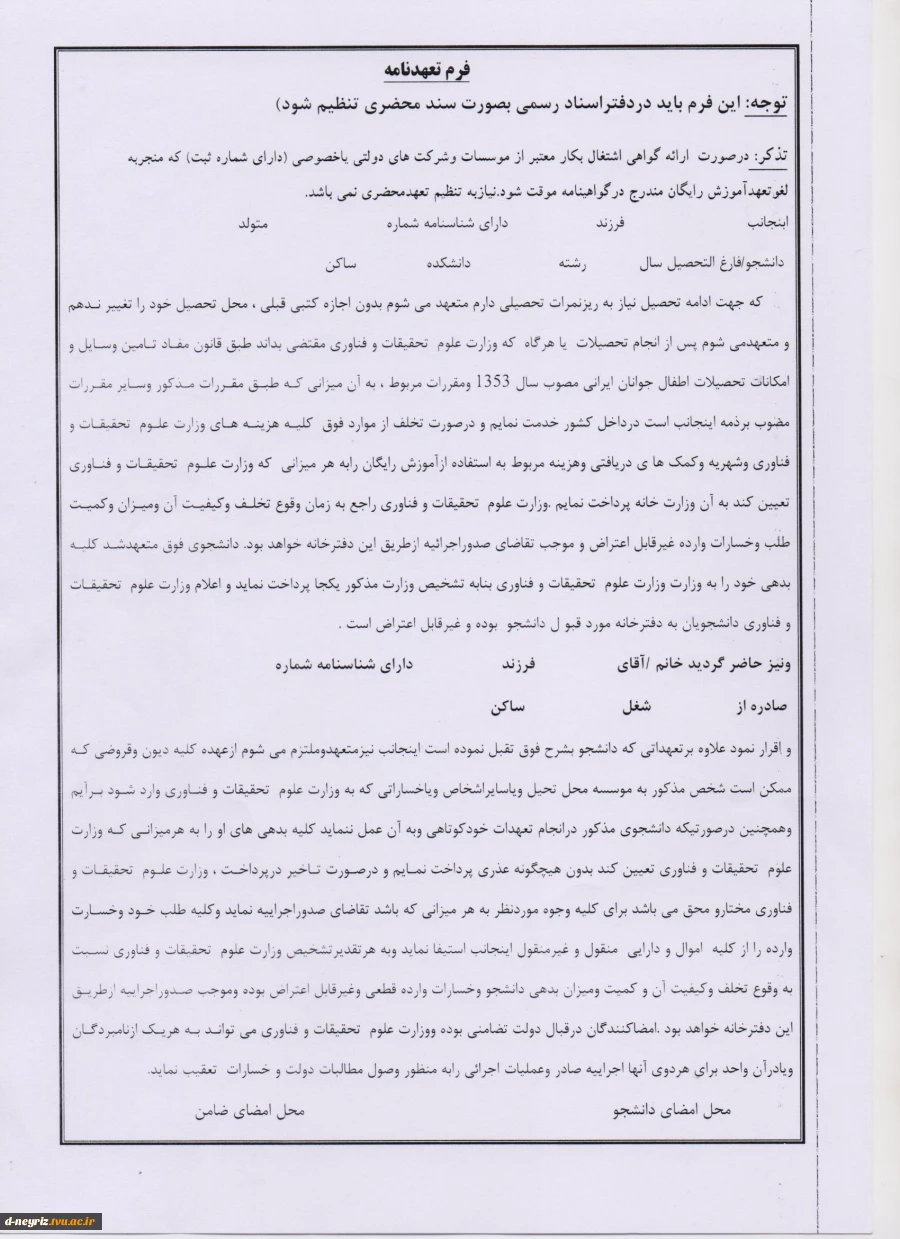 فرم تعهدنامه
توجه: این فرم باید دردفتراسناد رسمی بصورت سند محضری تنظیم شود)
تذکر: درصورت ارائه گواهی اشتغال بکار معتبر از موسسات وشرکت های دولتی یاخصوصی (دارای شماره ثبت) که منجربه
لغوتعهدآموزش رایگان مندرج درگواهینامه موقت شود.نیازبه تنظیم تعهدمحضری نمی باشد.
اینجانب فرزند دارای شناسنامه شماره متولد
دانشجو/فارغ التحصیل سال رشته دانشکده ساکن
که جهت ادامه تحصیل نیاز به ریزنمرات تحصیلی دارم متعهد می شوم بدون اجازه کتبی قبلی ، محل تحصیل خود را تغییر ندهم
و متعهدمی شوم پس از انجام تحصیلات یا هرگاه که وزارت علوم تحقیقات و فناوری مقتضی بداند طبق قانون مفاد تامین وسایل و
امکانات تحصیلات اطفال جوانان ایرانی مصوب سال 1353 ومقررات مربوط ، به آن میزانی که طبق مقررات مذکور وسایر مقررات
مضوب برذمه اینجانب است درداخل کشور خدمت نمایم و درصورت تخلف از موارد فوق کلیه هزینه های وزارت علوم تحقیقات و
فناوری وشهریه وکمک ها ی دریافتی وهزینه مربوط به استفاده ازآموزش رایگان رابه هر میزانی که وزارت علوم تحقیقات و فناوری
تعیین کند به آن وزارت خانه پرداخت نمایم .وزارت علوم تحقیقات و فناوری راجع به زمان وقوع تخلف وکیفیت آن ومیزان وکمیت
طلب وخسارات وارده غیرقابل اعتراض و موجب تقاضای صدوراجرائیه ازطریق این دفترخانه خواهد بود. دانشجوی فوق متعهدشد کلیه
بدهی خود را به وزارت وزارت علوم تحقیقات و فناوری بنابه تشخیص وزارت مذکور یکجا پرداخت نماید و اعلام وزارت علوم تحقیقات
و فناوری دانشجویان به دفترخانه مورد قبو ل دانشجو بوده و غیرقابل اعتراض است .
ونیز حاضر گردید خانم /آقای فرزند دارای شناسنامه شماره
صادره از شغل ساکن
و اقرار نمود علاوه برتعهداتی که دانشجو بشرح فوق تقبل نموده است اینجانب نیزمتعهدوملتزم می شوم ازعهده کلیه دیون وقروضی که
ممکن است شخص مذکور به موسسه محل تحیل ویاسایراشخاص ویاخساراتی که به وزارت علوم تحقیقات و فناوری وارد شود برآیم
وهمچنین درصورتیکه دانشجوی مذکور درانجام تعهدات خودکوتاهی وبه آن عمل ننماید کلیه بدهی های او را به هرمیزانی که وزارت
علوم تحقیقات و فناوری تعیین کند بدون هیچگونه عذری پرداخت نمایم و درصورت تاخیر درپرداخت ، وزارت علوم تحقیقات و
فناوری مختارو محق می باشد برای کلیه وجوه موردنظر به هر میزانی که باشد تقاضای صدوراجراییه نماید وکلیه طلب خود وخسارت
وارده را از کلیه اموال و دارایی منقول و غیرمنقول اینجانب استیفا نماید وبه هرتقدیرتشخیص وزارت علوم تحقیقات و فناوری نسبت
به وقوع تخلف وکیفیت آن و کمیت ومیزان بدهی دانشجو وخسارات وارده قطعی وغیرقابل اعتراض بوده وموجب صدوراجراییه ازطریق
این دفترخانه خواهد بود .امضاکنندگان درقبال دولت تضامنی بوده ووزارت علوم تحقیقات و فناوری می تواند به هریک ازنامبردگان
ویادرآن واحد برای هردوی آنها اجراییه صادر وعملیات اجرائی رابه منظور وصول مطالبات دولت و خسارات تعقیب نماید.
محل امضای دانشجو محل امضای ضامن
d-neyriz.tvu.ac.ir